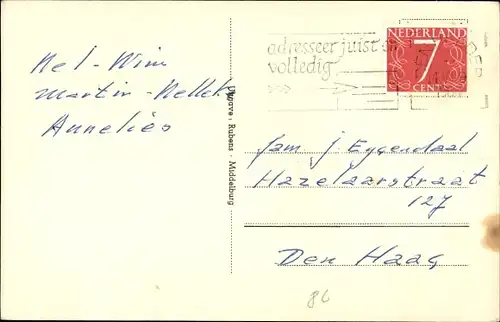 Nel-Wim
Martin-Nelleke
Annelies
Uitgave: Rubens - Middelburg
adresseer juist en
volledig
NEDERLAND
7
CENT
fam j. Eygendaal
Hazelaarstraat
127
Den Haag
86